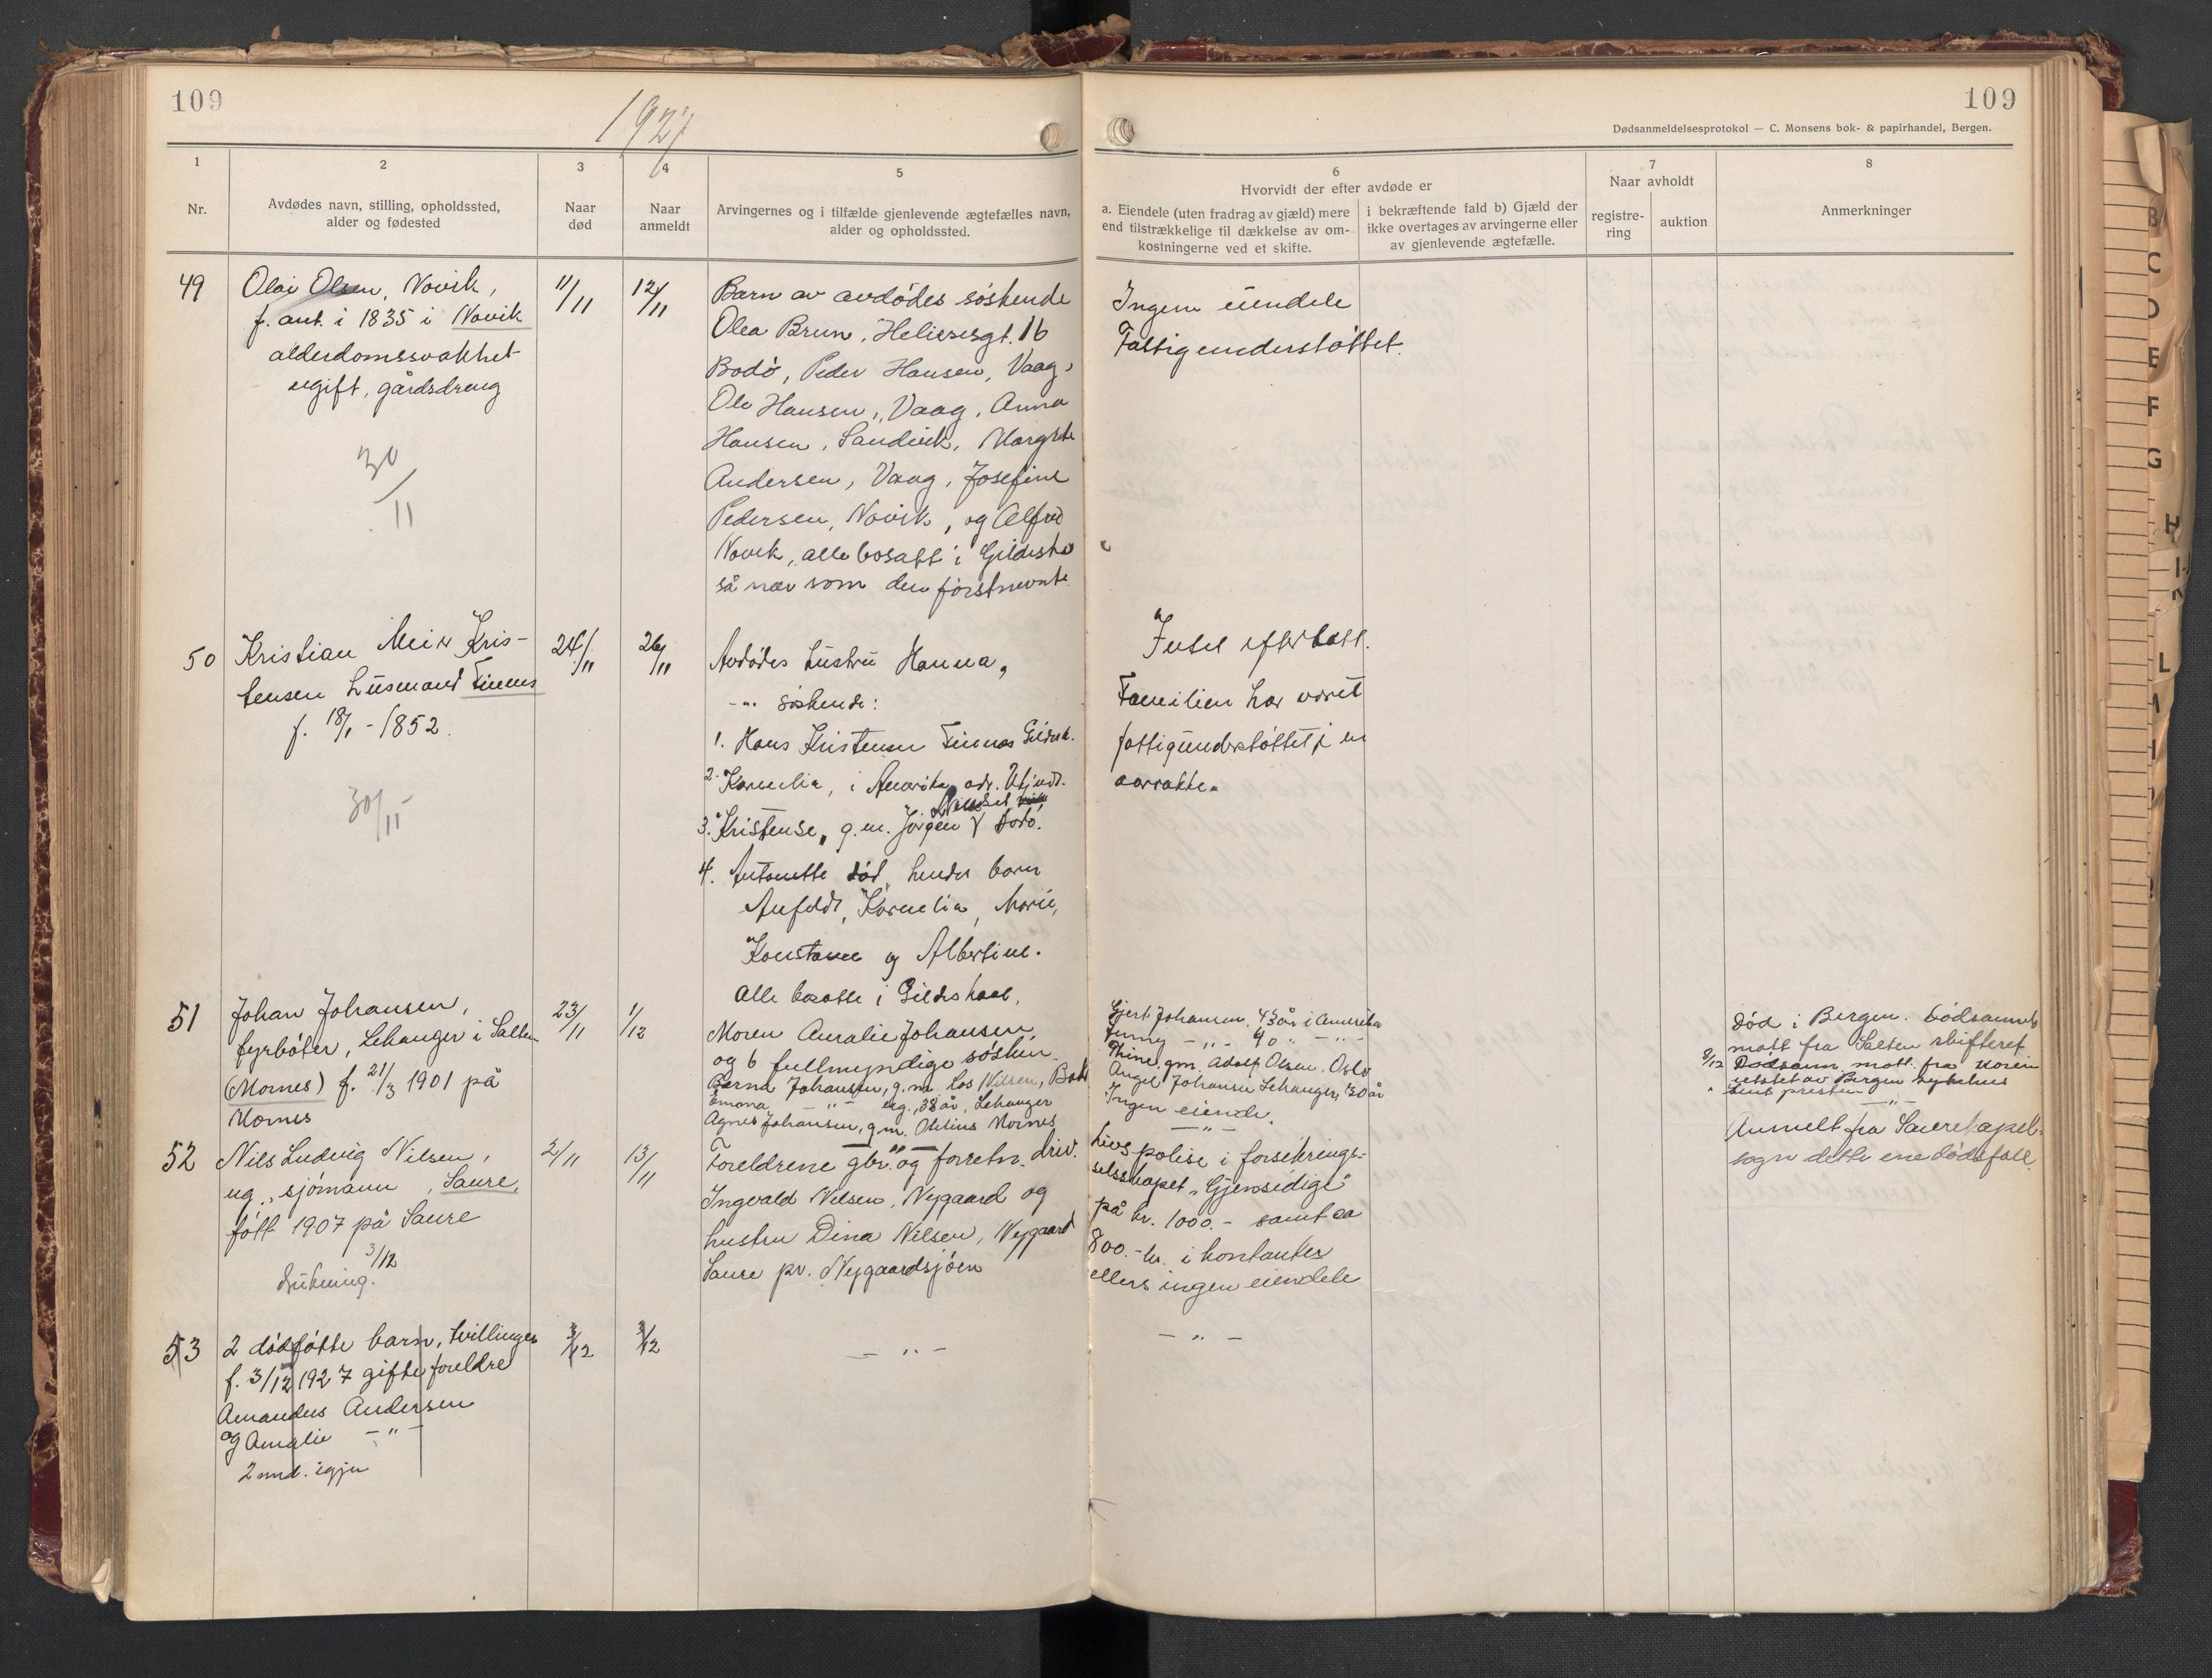 109
1927
109
Dødsanmeldelsesprotokol — C. Monsens bok- & papirhandel, Bergen.
1
Nr.
2
Avdødes navn, stilling, opholdssted,
alder og fødested
3
Naar
død
4
Naar
anmeldt
5
Arvingernes og i tilfælde gjenlevende ægtefælles navn,
alder og opholdssted.
6
Hvorvidt der efter avdøde er
a. Eiendele (uten fradrag av gjæld) mere
end tilstrækkelige til dækkelse av om-
kostningerne ved et skifte.
i bekræftende fald b) Gjæld der
ikke overtages av arvingerne eller
av gjenlevende ægtefælle.
7
Naar avholdt
registre-
ring
auktion
8
Anmerkninger
49
Olai Olsen, Novik,
f. ant. i 1835 i Novik
alderdomssvakhet
ugift, gårdsdreng
30/11
11/11
12/11
Barn av avdødes søskende
Olea Brun, 16
Bodø, Peder Hansen, Vaag,
Ole Hansen, Vaag, Anna
Hansen, Sandvik, Margrete
Andersen, Vaag, Josefine
Pedersen, Novik, og Alfred
Novik, alle bosatt i Gildeskå
så nær som den førstnevnte
Ingen eiendele
Fattigunderstøttet.
50
Kristian Meier Kris-
tensen Husmand Finnes
f. 18/1 - 1852.
30/11
24/11
26/11
Avdødes hustru Hanna,
-"- søskende:
1. Hans Kristensen Finnes Gildesk.
2. Kornelia, i Amerika, adr. Ukjendt.
3. Kristense, g.m. Jørgen Bodø.
4. Antonette død, hendes barn
Kornelia, Marie,
Konstanse og Albertine.
Alle bosatte i Gildeskaal.
Intet efterlatt.
Familien har været
fattigunderstøttet i en
aarrække.
51
Johan Johansen,
fyrbøter, Lekanger i Salten
(Mornes) f. 21/3 1901 på
Mornes
23/11
1/12
Moren Amalie Johansen
og 6 fullmyndige søsken
Berna Johansen, g.m. Nilsen, Bodø
-"- ug., 38 år, Lekanger
Agnes Johansen, g.m. Mornes
Gjert Johansen. 43 år i Amerika
Jenny -"- 40 " -"-
Thine, g.m. Adolf Olsen, Oslo
Angel Johansen Lekanger, 30 år
Ingen eiende.
Død i Bergen. Dødsanmeld
mott fra Salten skifteret
8/12 Dødsanm. mott. fra Moren
utstet av Bergen sykehus
sendt presten
52
Nils Ludvig Nilsen,
ug., sjømann, Saure,
født 1907 på Saure
3/12
drukning.
2/11
13/11
-"-
Foreldrene gbr. og forretn. driv.
Ingvald Nilsen, Nygaard og
hustru Dina Nilsen, Nygaard
Saure pr. Nygaardsjøen
-"-
Livspolise i forsikrings-
selsskapet "Gjensidige"
på kr. 1000.- samt ca
800.- kr. i kontanter
ellers ingen eiendele
-"-
Anmelt fra Saura kapel-
sogn dette ene dødsfall.
53
2 dødfødte barn, tvillinger
f. 3/12 1927 gifte foreldre
Amandus Andersen
og Amalie -"-
2 mnd. igjen
3/12
3/12
-"-
-"-
B
C
D
E
F
G
H
I
K
L
M